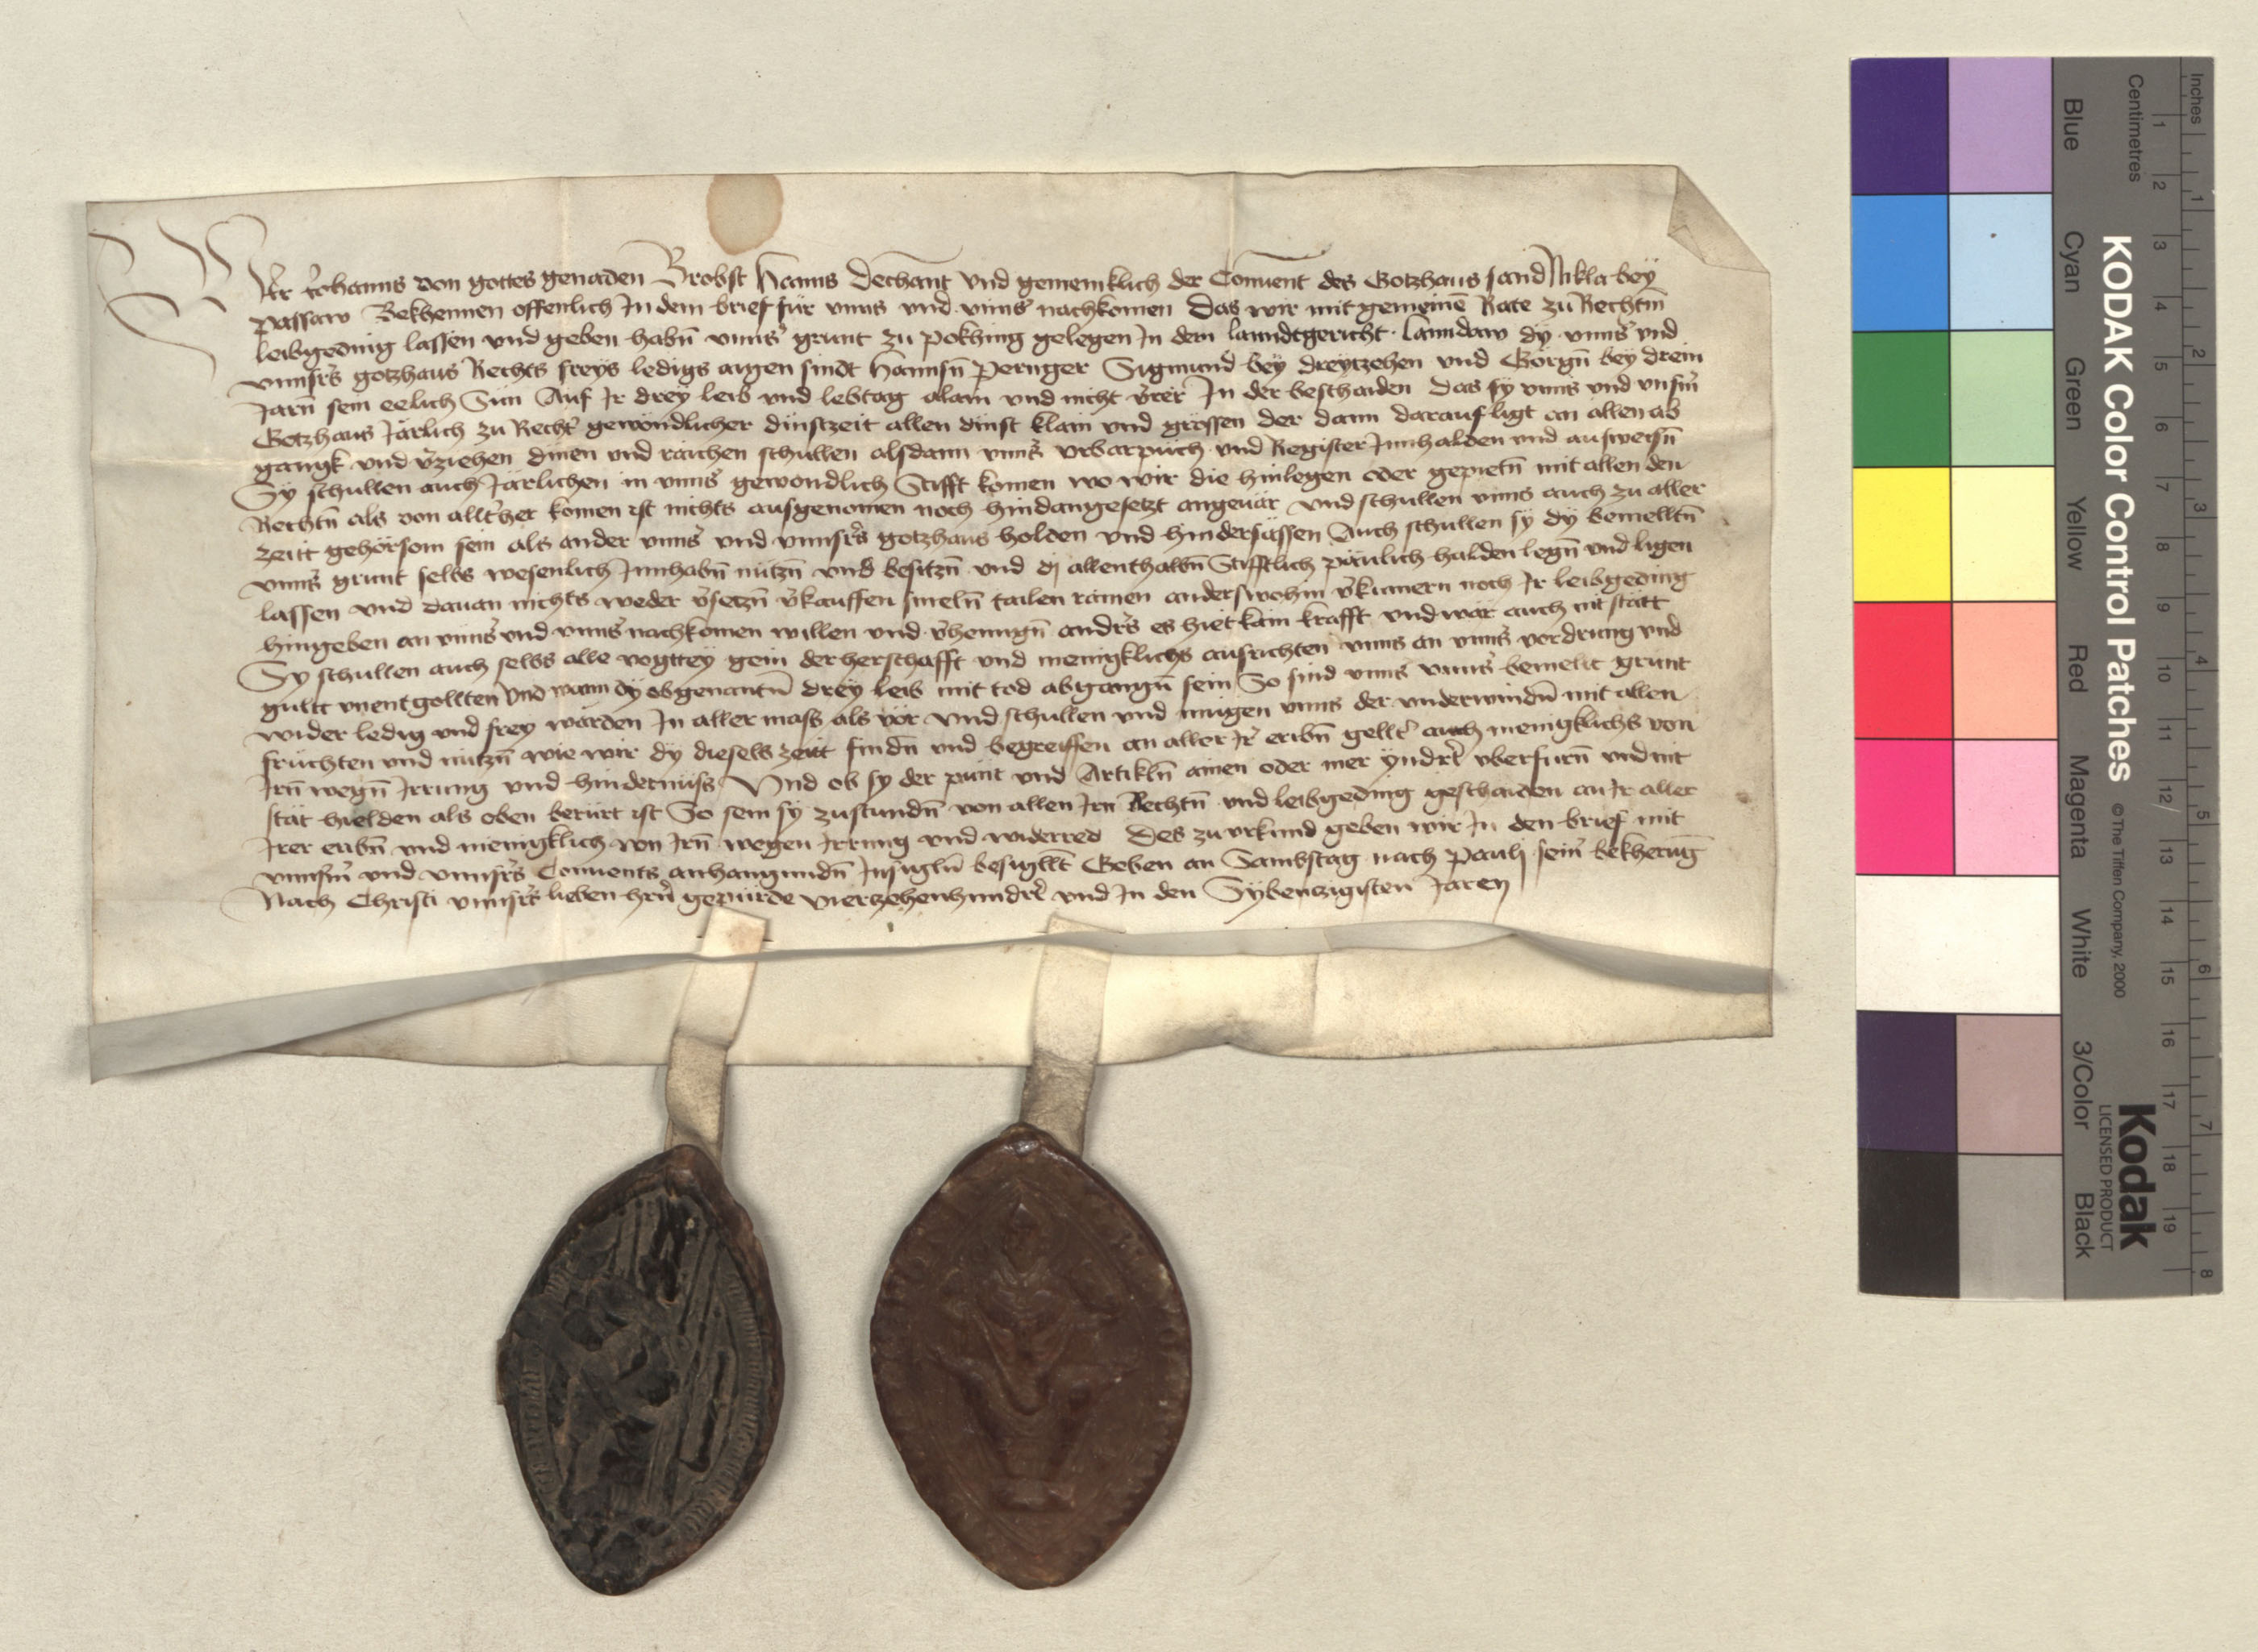 Wir Johanns von gottes genaden Brobst Hanns Dechant vnd gemeinklich der Conuent des Gotzhaus sand Nikla bey
passaw Bekhennen offenlich Jn dem brief für vnns vnd vnns' nachkomen Das wir mit gemeinē Rate zu Rechtm̄
leibgeding lassen vnd geben habn̄ vnns' grunt zu pokhing gelegen Jn dem lanndtgericht lanndaw dy vnns' vnd
vnnsr's gotzhaus Rechts freys ledigs aigen sindt Hannsn̄ Pernger Sigmund bey dreytzehen vnd Görgn̄ bey drein
Jarn̄ sein eelich Sün Auf Jr drey leib vnd lebtag alain vnd nicht v'rer Jn der beschaiden Das sy vnns vnd vnsm̄
Gotzhaus Järlich zu Recht' gewondlicher dinstzeit allen dinst klain vnd grössen der dann darauf ligt an allen ab
gangk vnd v'ziehen dinen vnd raichen schullen alsdann vnns' vrbarpuch vnd Register Jnnhalden vnd ausweisn̄
Sy schullen auch Järlichen in vnns' gewondlich Stifft komen wo wir die hinlegen oder gepietn̄ mit allen den
Rechtn̄ als von allther komen ist nichts ausgenomen noch hindangesetzt angeuär vnd schullen vnns auch zu aller
zeitt gehörsom sein als ander vnns' vnd vnnsr's gotzhaus holden vnd hindersässen Auch schullen sy dy bemelltn̄
vnns' grunt selbs wesenlich Jnnhabn̄ nützn̄ vnd besitzn̄ vnd dj allenthalbn̄ Stifftlich päulich halden legn̄ vnd ligen
lassen vnd dauan nichts weder v'setzn̄ v'kauffen smeln̄ tailen ramen anderswohin v'kumern noch Jr leibgeding
hingeben an vnns' vnd vnns' nachkomen willen vnd v'henngn̄ andr's es hiet kain krafft vnd war auch nit stätt
Sy schullen auch selbs alle vogttey gein der herschafft vnd menigklichs ausrichten vnns an vnns' vordrung vnd
gullt vnentgollten Vnd wann dy obgenantn̄ drey leib mit tod abgangn̄ sein So sind vnns vnns' bemelt grunt
wider ledig vnd frey warden Jn aller mass als vor vnd schullen vnd mügen vnns der vnderwindn̄ mit allen
früchten vnd nützn̄ wie wir dy dieselb zeitt findn̄ vnd begreiffen an aller Jr' eribn̄ gellt' auch menigklichs von
Jrn̄ wegn̄ Jrrung vnd hindernüss Vnd ob sy der punt vnd Artikln̄ ainen oder mer yndr't vberfurn̄ vnd nit
stät hielden als oben berürt ist So sein sy zustundn̄ von allen Jrn Rechtn̄ vnd leibgeding geschaiden an Jr aller
Jrer eribn̄ vnd menigklich von Jrn̄ wegen Jrrung vnd widerred Des zu vrkund geben wir Jn den brief mit
vnnsm̄ vnd vnnsr's Conuents anhangundn̄ Jnsigln̄ besigllt Geben an Sambstag nach Pauli sein' bekherūg
Nach Christi vnnsr's lieben hrn̄ gepürde vierzehenhundr't vnd Jn den Sybenzigisten Jaren
Inches
Centimetres
KODAK Color Control Patches
© The Tiffen Company, 2000
Kodak
LICENSED PRODUCT
Blue
Cyan
Green
Yellow
Red
Magenta
White
3/Color
Black
1 2 3 4 5 6 7 8 9 10 11 12 13 14 15 16 17 18 19
1 2 3 4 5 6 7 8